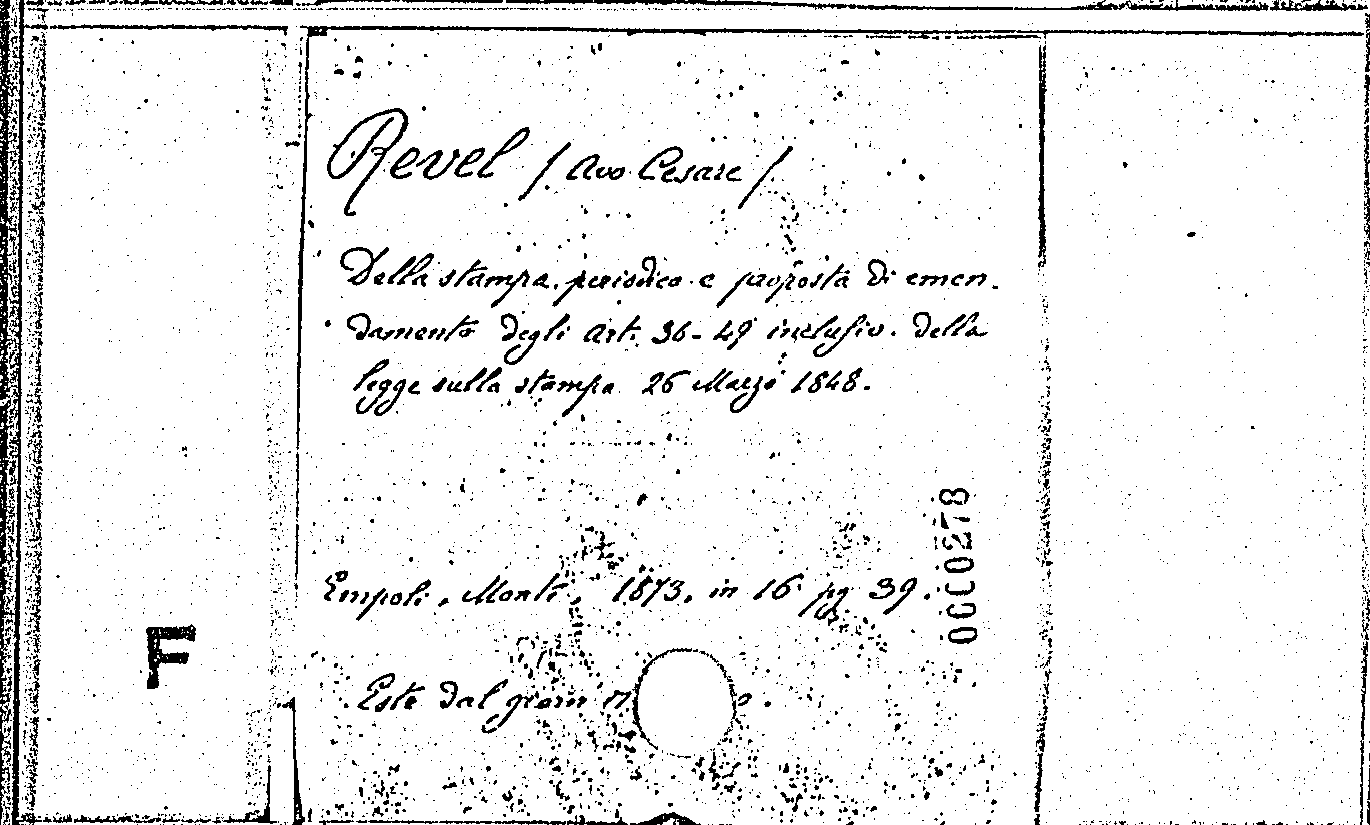 Revel / Avo Cesare /
Della stampa periodica e proposta di emen-
damento degli Arti. 36-49 inclusiv. della
legge sulla stampa 26 Marzo 1848.
Empoli, Monti, 1873, in 16 pg 39.
Este dal giorn
0000278
F